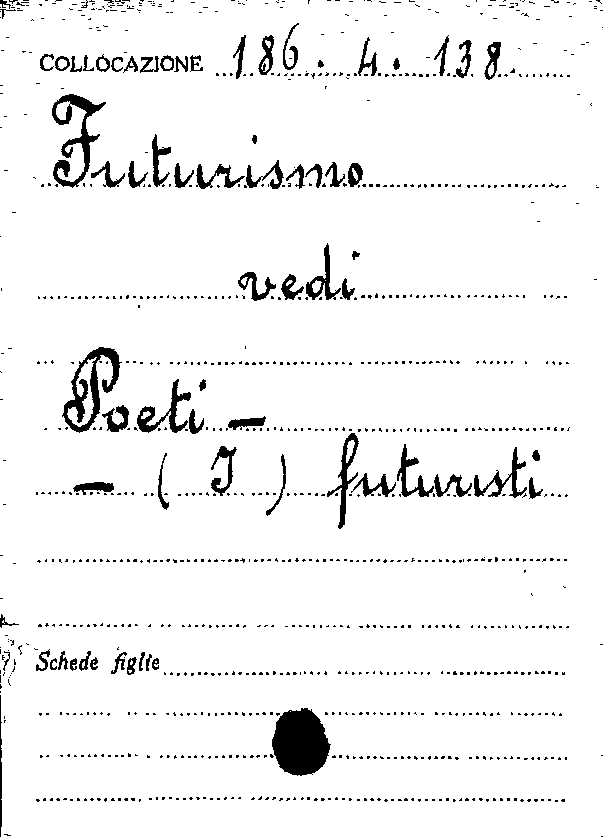 COLLOCAZIONE 186. 4. 138
Futurismo
vedi
Poeti -
- ( I ) futuristi
Schede figlie